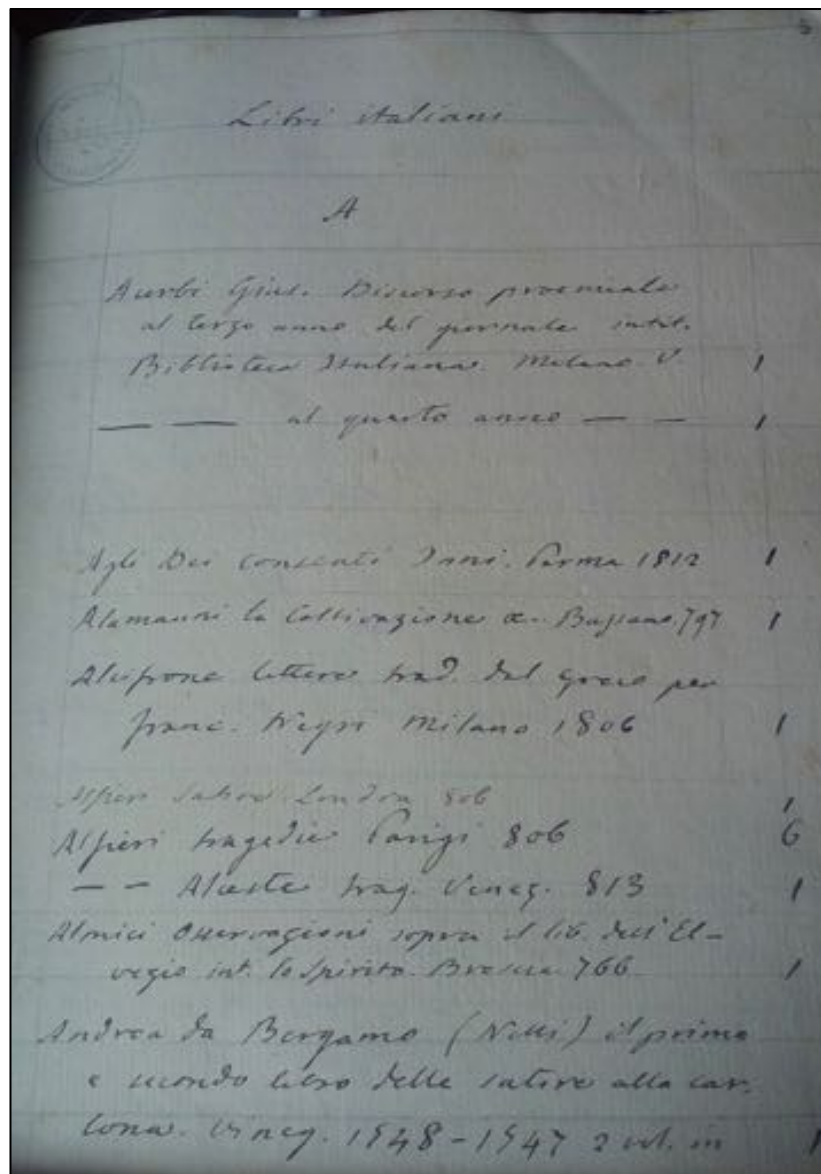 5
Libri italiani
A
Acerbi Gius. Discorso proemiale
al terzo anno del giornale intit.
Biblioteca Italiana. Milano. V. 1
— — al quarto anno — — 1
Agli Dei consenti Inni. Parma 1812 1
Alamanni la Coltivazione &. Bassano. 797 1
Alcifrone lettere trad. dal greco per
franc. Negri Milano 1806 1
Alfieri Satire. Londra 806 1
Alfieri tragedie Parigi 806 6
— — Alceste trag. Venez. 813 1
Almici Osservazioni sopra il lib. dell' El-
vezio int. lo Spirito. Brescia 766 1
Andrea da Bergamo (Nelli) il primo
e secondo libro delle satire alla car-
lona. Vineg. 1548-1547 2 vol. in 1